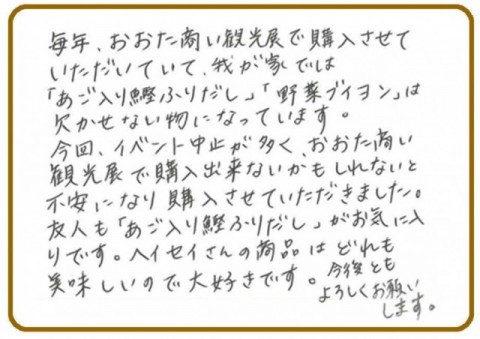 毎年、おおた商い観光展で購入させて
いただいていて、我が家では
「あご入り鰹ふりだし」「野菜ブイヨン」は
欠かせない物になっています。
今回、イベント中止が多く、おおた商い
観光展で購入出来ないかもしれないと
不安になり購入させていただきました。
友人も「あご入り鰹ふりだし」がお気に入
りです。ヘイセイさんの商品はどれも
美味しいので大好きです。今後とも
よろしくお願い
します。